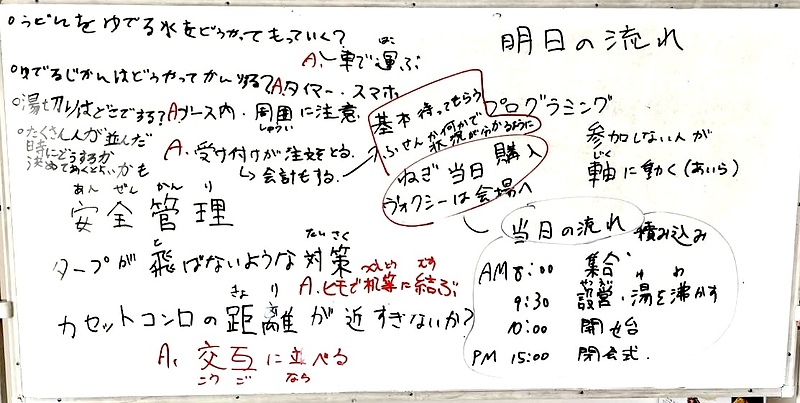 ○うどんをゆでる水をどうやってもっていく?
A. 車で運ぶ
はこ
○ゆでるじかんはどうやってかんりする? A.タイマー・スマホ
○湯切りはどこでする? A.ブース内・周囲に注意
しゅうい
○たくさん人が並んだ
時にどうするか
決めておくとよいかも
A. 受け付けが注文をとる。
↳ 会計もする。
基本 待ってもらう
ふせんか何かで
状況が分かるように
ねぎ 当日 購入
ヴォクシーは会場へ
あん ぜん かん り
安全管理
と たいさく
タープが飛ばないような対策
A.ヒモで机等に結ぶ
きょ り
カセットコンロの距離が近すぎないか?
A. 交互に並べる
こう ご なら
明日の流れ
プログラミング
参加しない人が
じく
軸に動く(あいら)
当日の流れ
積み込み
AM 8:00 集合
ゆ わ
9:30 設営・湯を沸かす
10:00 開始
PM 15:00 閉会式.